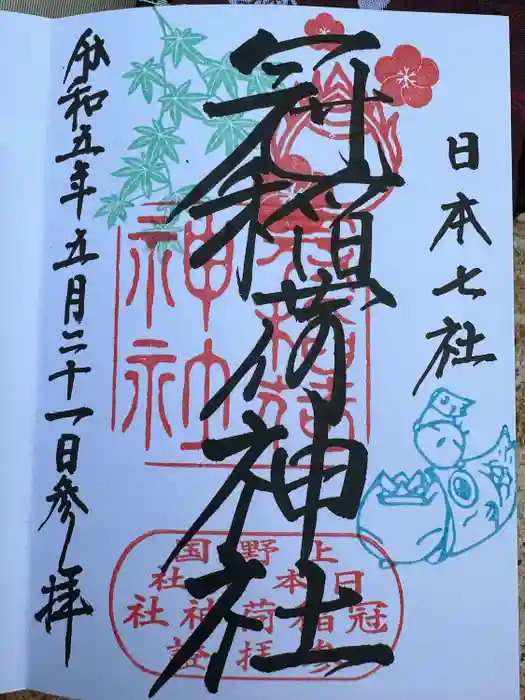 日本七社
冠稲荷神社
令和五年五月二十一日参拝
上野国
日本 社
冠稲荷神社
参拝證